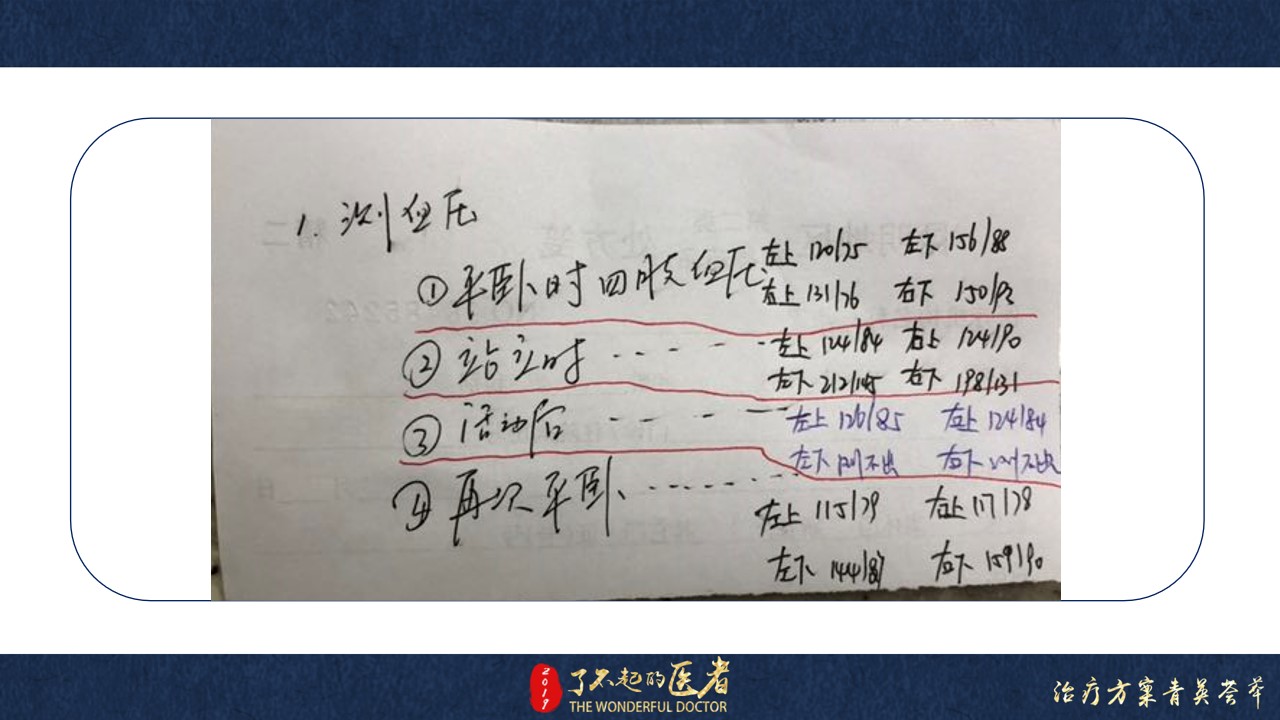 1. 测血压
① 平卧时四肢血压 左上 120/75 左下 156/88
右上 131/76 右下 150/92
② 站立时 左上 124/84 右上 124/90
左下 212/145 右下 198/131
③ 活动后 左上 126/85 右上 124/84
左下 测不出 右下 测不出
④ 再次平卧 左上 115/79 右上 117/78
左下 144/87 右下 159/90
2019 了不起的医者
THE WONDERFUL DOCTOR
治疗方案青英荟萃